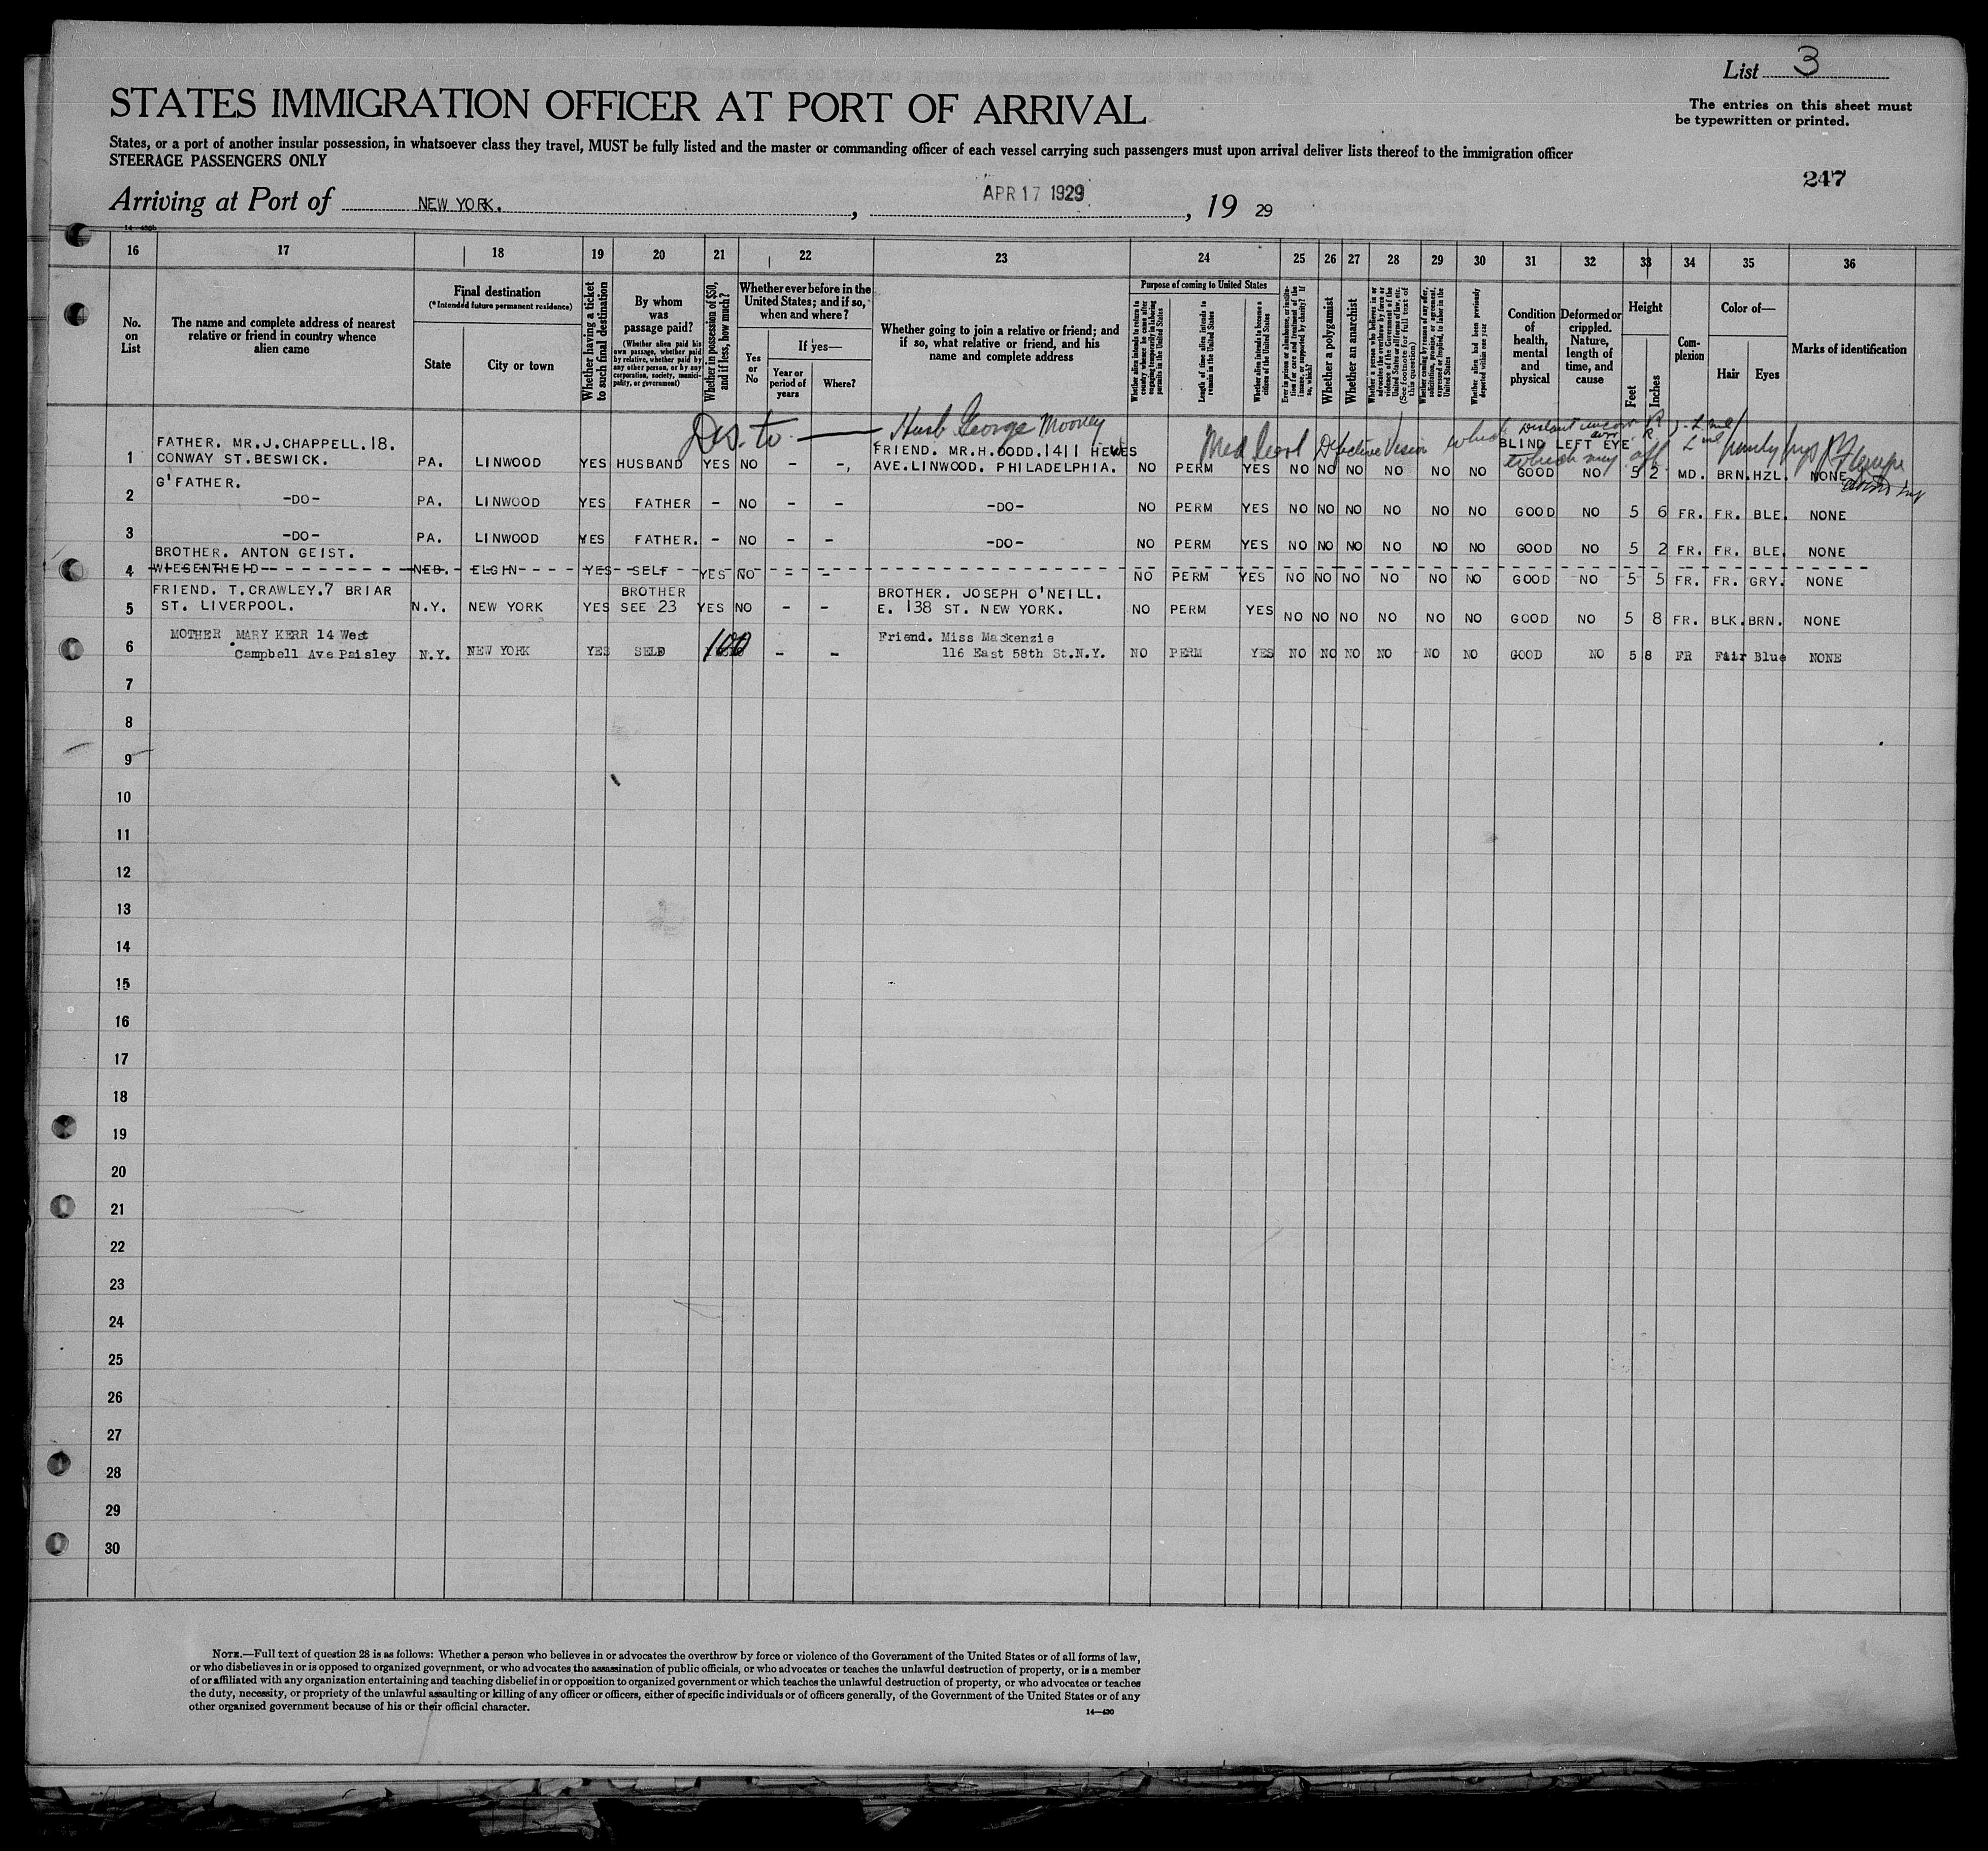 List 3
STATES IMMIGRATION OFFICER AT PORT OF ARRIVAL
The entries on this sheet must
be typewritten or printed.
States, or a port of another insular possession, in whatsoever class they travel, MUST be fully listed and the master or commanding officer of each vessel carrying such passengers must upon arrival deliver lists thereof to the immigration officer
STEERAGE PASSENGERS ONLY
247
Arriving at Port of NEW YORK. , APR 17 1929 , 19 29
16 17 18 19 20 21 22 23 24 25 26 27 28 29 30 31 32 33 34 35 36
No. on List
The name and complete address of nearest relative or friend in country whence alien came
Final destination
(*Intended future permanent residence)
State
City or town
Whether having a ticket to such final destination
By whom was passage paid?
(Whether alien paid his own passage, whether paid by relative, whether paid by any other person, or by any corporation, society, municipality, or government)
Whether in possession of $50, and if less, how much?
Whether ever before in the United States; and if so, when and where?
Yes or No
If yes—
Year or period of years
Where?
Whether going to join a relative or friend; and if so, what relative or friend, and his name and complete address
Purpose of coming to United States
Whether alien intends to return to country whence he came after engaging temporarily in laboring pursuits in the United States
Length of time alien intends to remain in the United States
Whether alien intends to become a citizen of the United States
Ever in prison or almshouse, or institution for care and treatment of the insane, or supported by charity? If so, which?
Whether a polygamist
Whether an anarchist
Whether a person who believes in or advocates the overthrow by force or violence of the Government of the United States or all forms of law, etc. (See footnote for full text of this question)
Whether coming by reason of any offer, solicitation, promise, or agreement, expressed or implied, to labor in the United States
Whether alien had been previously deported within one year
Condition of health, mental and physical
Deformed or crippled. Nature, length of time, and cause
Height
Feet
Inches
Complexion
Color of—
Hair
Eyes
Marks of identification
Dis. to — Husb George Mooney
Med Cert Defective Vision which
Distant
BLIND LEFT EYE
which may
FATHER. MR.J.CHAPPELL.18. FRIEND. MR.H.DODD.1411 HEWES
1 CONWAY ST.BESWICK. PA. LINWOOD YES HUSBAND YES NO - -, AVE.LINWOOD. PHILADELPHIA. NO PERM YES NO NO NO NO NO NO GOOD NO 5 2 MD. BRN. HZL. NONE
G'FATHER.
2 -DO- PA. LINWOOD YES FATHER - NO - - -DO- NO PERM YES NO NO NO NO NO NO GOOD NO 5 6 FR. FR. BLE. NONE
3 -DO- PA. LINWOOD YES FATHER. - NO - - -DO- NO PERM YES NO NO NO NO NO NO GOOD NO 5 2 FR. FR. BLE. NONE
BROTHER. ANTON GEIST.
4 WIESENTHEID NEB. ELGIN YES SELF YES NO - - NO PERM YES NO NO NO NO NO NO GOOD NO 5 5 FR. FR. GRY. NONE
FRIEND. T.CRAWLEY.7 BRIAR BROTHER BROTHER. JOSEPH O'NEILL.
5 ST. LIVERPOOL. N.Y. NEW YORK YES SEE 23 YES NO - - E. 138 ST. NEW YORK. NO PERM YES NO NO NO NO NO NO GOOD NO 5 8 FR. BLK. BRN. NONE
MOTHER MARY KERR 14 West Friend. Miss Mackenzie
6 Campbell Ave Paisley N.Y. NEW YORK YES SELF 100 - - 116 East 58th St.N.Y. NO PERM YES NO NO NO NO NO NO GOOD NO 5 8 FR Fair Blue NONE
7
8
9
10
11
12
13
14
15
16
17
18
19
20
21
22
23
24
25
26
27
28
29
30
NOTE.—Full text of question 28 is as follows: Whether a person who believes in or advocates the overthrow by force or violence of the Government of the United States or of all forms of law,
or who disbelieves in or is opposed to organized government, or who advocates the assassination of public officials, or who advocates or teaches the unlawful destruction of property, or is a member
of or affiliated with any organization entertaining and teaching disbelief in or opposition to organized government or which teaches the unlawful destruction of property, or who advocates or teaches
the duty, necessity, or propriety of the unlawful assaulting or killing of any officer or officers, either of specific individuals or of officers generally, of the Government of the United States or of any
other organized government because of his or their official character.
14—430